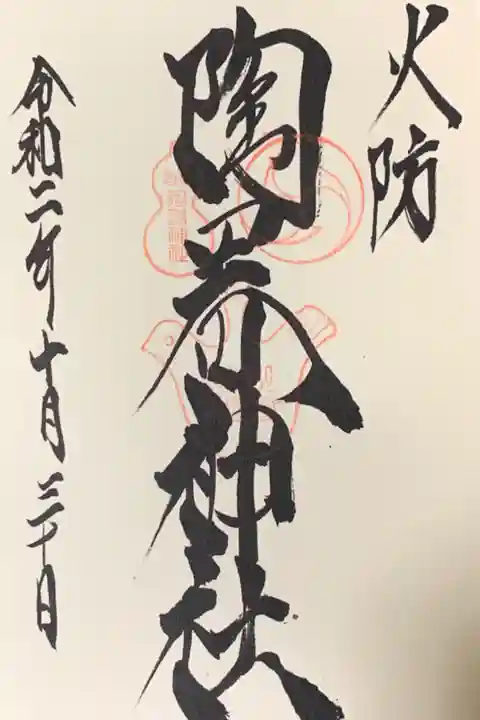 火防
陶器神社
令和二年十月三十日